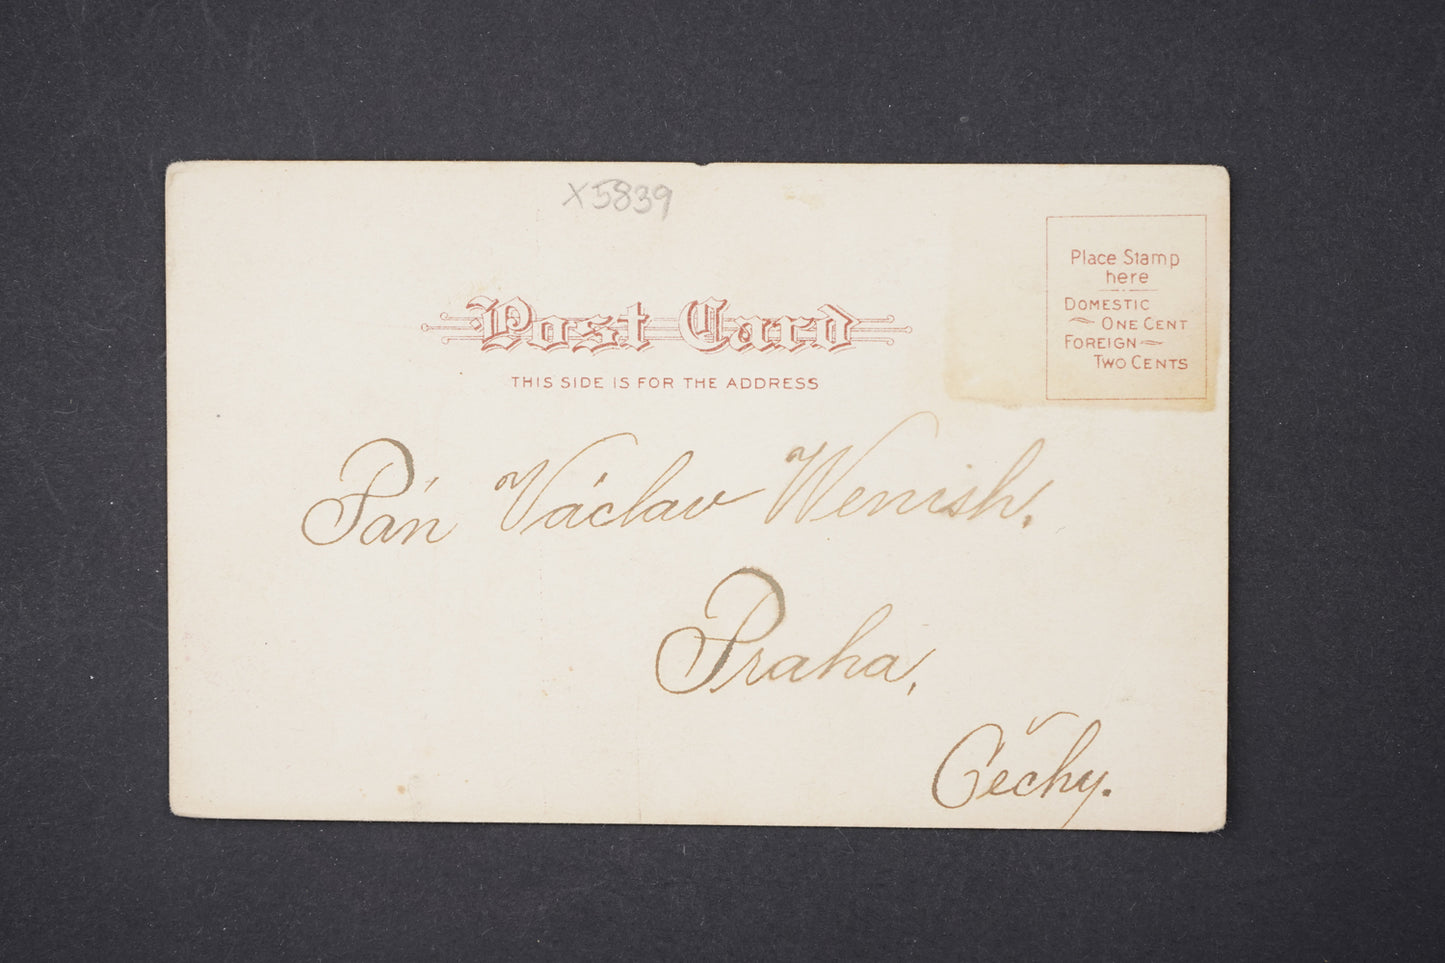 X5839
Post Card
THIS SIDE IS FOR THE ADDRESS
Place Stamp
here
DOMESTIC
ONE CENT
FOREIGN
TWO CENTS
Pán Václav Wenish.
Praha,
Čechy.